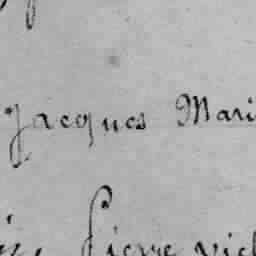 Jacques Mari
Pierre